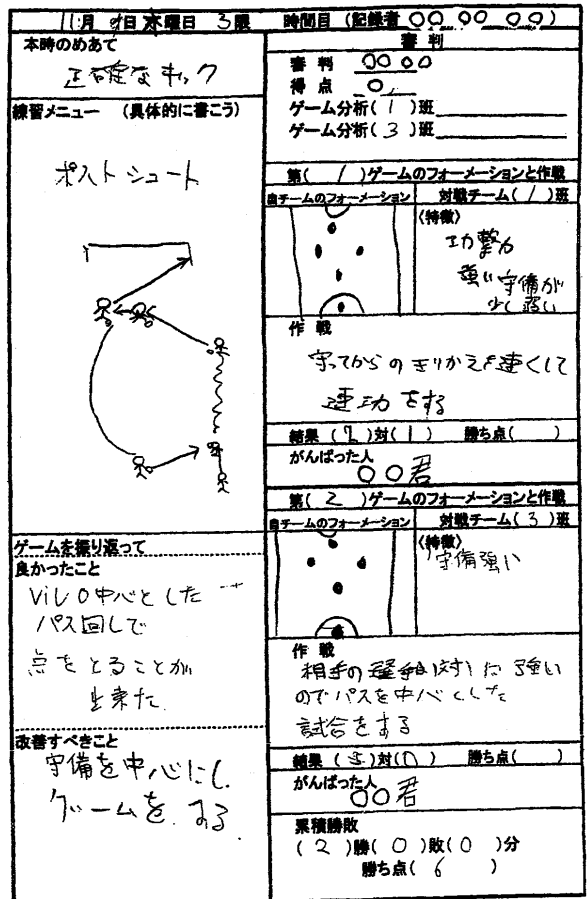 11月 9日 木曜日 3限 時間目 (記録者 〇〇 〇〇 〇〇)
本時のめあて
正確なキック
練習メニュー (具体的に書こう)
ポストシュート
ゲームを振り返って
良かったこと
中心とした
パス回しで
点をとることが
出来た.
改善すべきこと
守備を中心にし
ゲームを.する
審判
審判 〇〇 〇〇
得点 〇.
ゲーム分析( 1 )班
ゲーム分析( 3 )班
第( 1 )ゲームのフォーメーションと作戦
自チームのフォーメーション 対戦チーム( 1 )班
〈特徴〉
攻撃力
強い守備が
少し弱い
作戦
守ってからのきりかえを速くして
速攻をする
結果 (2)対(1) 勝ち点( )
がんばった人
〇〇君
第( 2 )ゲームのフォーメーションと作戦
自チームのフォーメーション 対戦チーム( 3 )班
〈特徴〉
守備強い
作戦
相手の 1対1に強い
のでパスを中心とした
試合をする
結果 (5)対(0) 勝ち点( )
がんばった人
〇〇君
累積勝敗
( 2 )勝( 0 )敗( 0 )分
勝ち点( 6 )